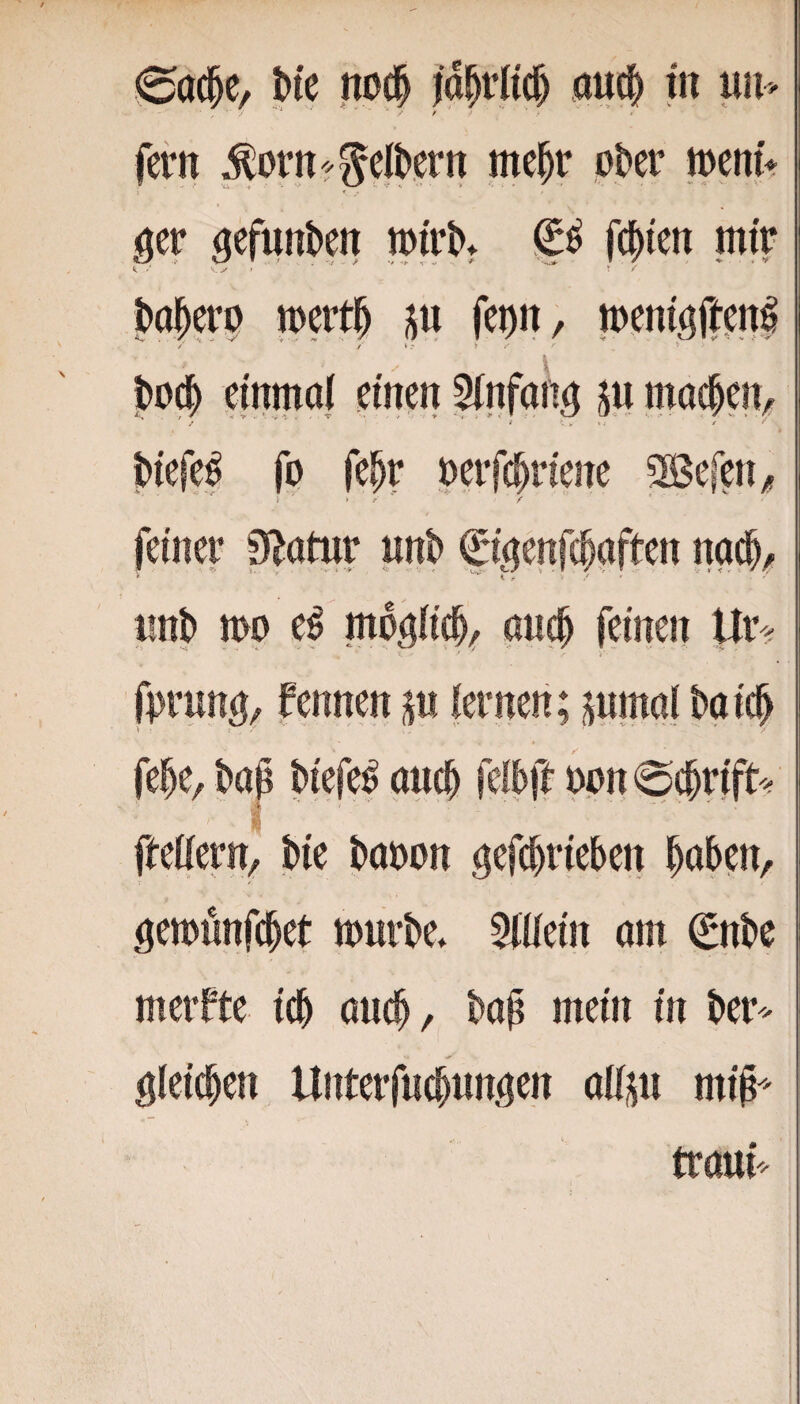 Sache, die noch jährlich auch in un-
sern Korn-Feldern mehr oder weni-
ger gefunden wird. Es schien mir
dahero werth zu seyn, wenigstens
doch einmal einen Anfang zu machen,
dieses so sehr verschriene Wesen,
seiner Natur und Eigenschaften nach,
und wo es möglich, auch seinen Ur-
sprung, kennen zu lernen; zumal da ich
sehe, daß dieses auch selbst von Schrift-
stellern, die davon geschrieben haben,
gewünschet wurde. Allein am Ende
merkte ich auch, daß mein in der-
gleichen Untersuchungen allzu miß-
traui-